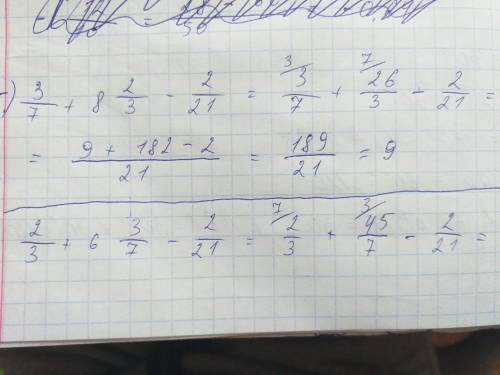 ) 3/7 + 8 2/3 - 2/21 = 3/ 3/7 + 7/ 26/3 - 2/21 =
= (9 + 182 - 2)/21 = 189/21 = 9
2/3 + 6 3/7 - 2/21 = 7/ 2/3 + 3/ 45/7 - 2/21 =